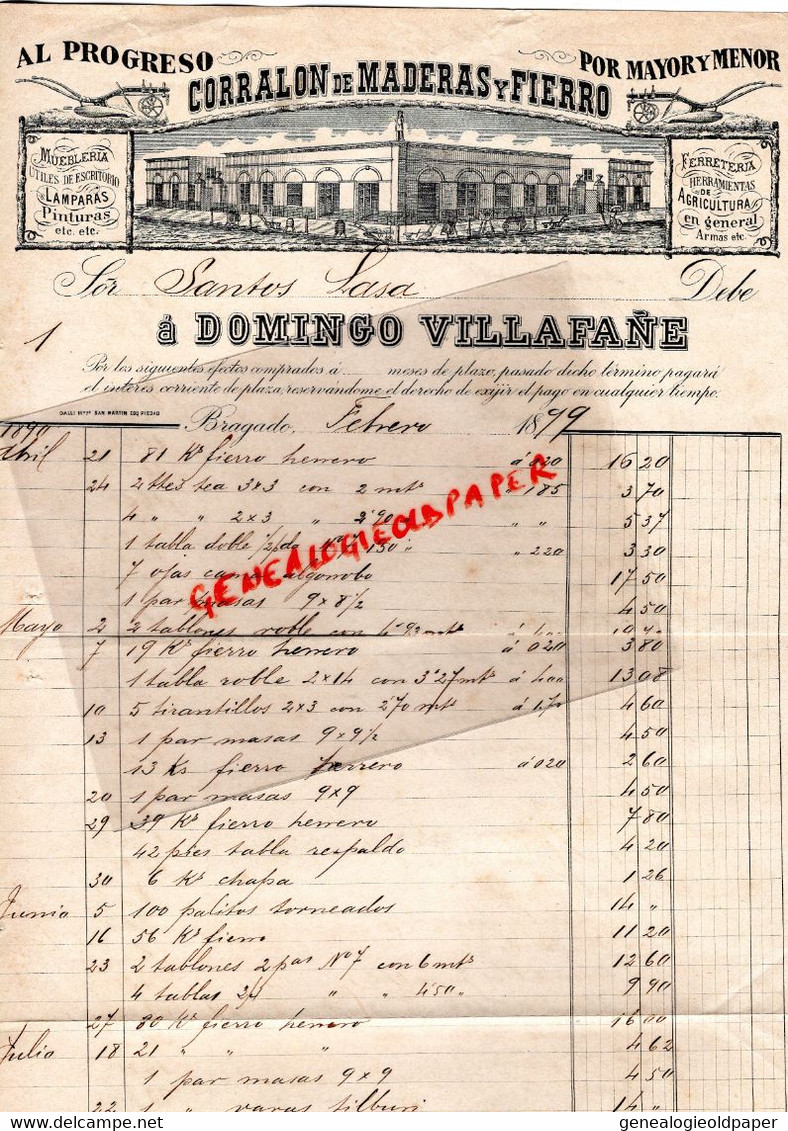 AL PROGRESO
POR MAYOR Y MENOR
CORRALON DE MADERAS Y FIERRO
MUEBLERIA
UTILES DE ESCRITORIO
LAMPARAS
Pinturas
etc. etc.
FERRETERIA
HERRAMIENTAS
DE
AGRICULTURA
en general
Armas etc.
Sor Santos Sasa Debe
á DOMINGO VILLAFAÑE
1
Por los siguientes efectos comprados á meses de plazo, pasado dicho termino pagará
el interés corriente de plaza, reservándome el derecho de exijir el pago en cualquier tiempo.
GALLI Hnos SAN MARTIN ESQ PIEDAD
Bragado, Febrero 1899
1890
Abril 21 81 Ks fierro herrero á 020 16 20
24 2 ttes tea 3x3 con 2 mts " 185 3 70
4 " " 2x3 " 2'90 " " 5 37
1 tabla doble " 220 3 30
7 ojas algorrobo 17 50
1 par masas 9x8 1/2 4 50
Mayo 2 2 tablones roble con
7 19 Ks fierro herrero á 020 3 80
1 tabla roble 2x14 con 3'27 mts á 400 13 08
10 5 tirantillos 2x3 con 2'70 mts á 4 60
13 1 par masas 9x9 1/2 4 50
13 Ks fierro herrero á 020 2 60
20 1 par masas 9x9 4 50
29 39 Ks fierro herrero 7 80
42 pies tabla respaldo 4 20
30 6 Ks chapa 1 26
Junio 5 100 palitos torneados 14 "
16 56 Ks fierro 11 20
23 2 tablones 2 pas No 7 con 6 mts 12 60
4 tablas " " 4'50 " 9 90
27 80 Ks fierro herrero 16 00
Julio 18 21 " " " 4 62
1 par masas 9x9 4 50
22 1 " varas tilburi 14 "
GENEALOGIEOLDPAPER
www.delcampe.net
genealogieoldpaper